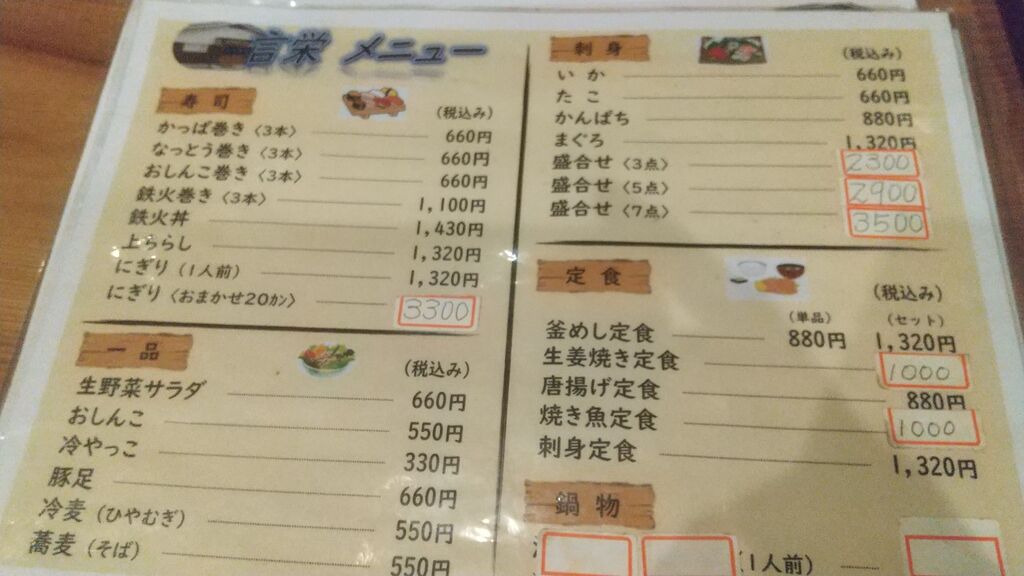 言栄 メニュー
寿司
(税込み)
かっぱ巻き〈3本〉 660円
なっとう巻き〈3本〉 660円
おしんこ巻き〈3本〉 660円
鉄火巻き〈3本〉 1,100円
鉄火丼 1,430円
上ちらし 1,320円
にぎり(1人前) 1,320円
にぎり〈おまかせ20カン〉 3300
一品
(税込み)
生野菜サラダ 660円
おしんこ 550円
冷やっこ 330円
豚足 660円
冷麦(ひやむぎ) 550円
蕎麦(そば) 550円
刺身
(税込み)
いか 660円
たこ 660円
かんぱち 880円
まぐろ 1,320円
盛合せ〈3点〉 2300
盛合せ〈5点〉 2900
盛合せ〈7点〉 3500
定食
(税込み)
(単品) (セット)
釜めし定食 880円 1,320円
生姜焼き定食 1000
唐揚げ定食 880円
焼き魚定食 1000
刺身定食 1,320円
鍋物
(1人前)